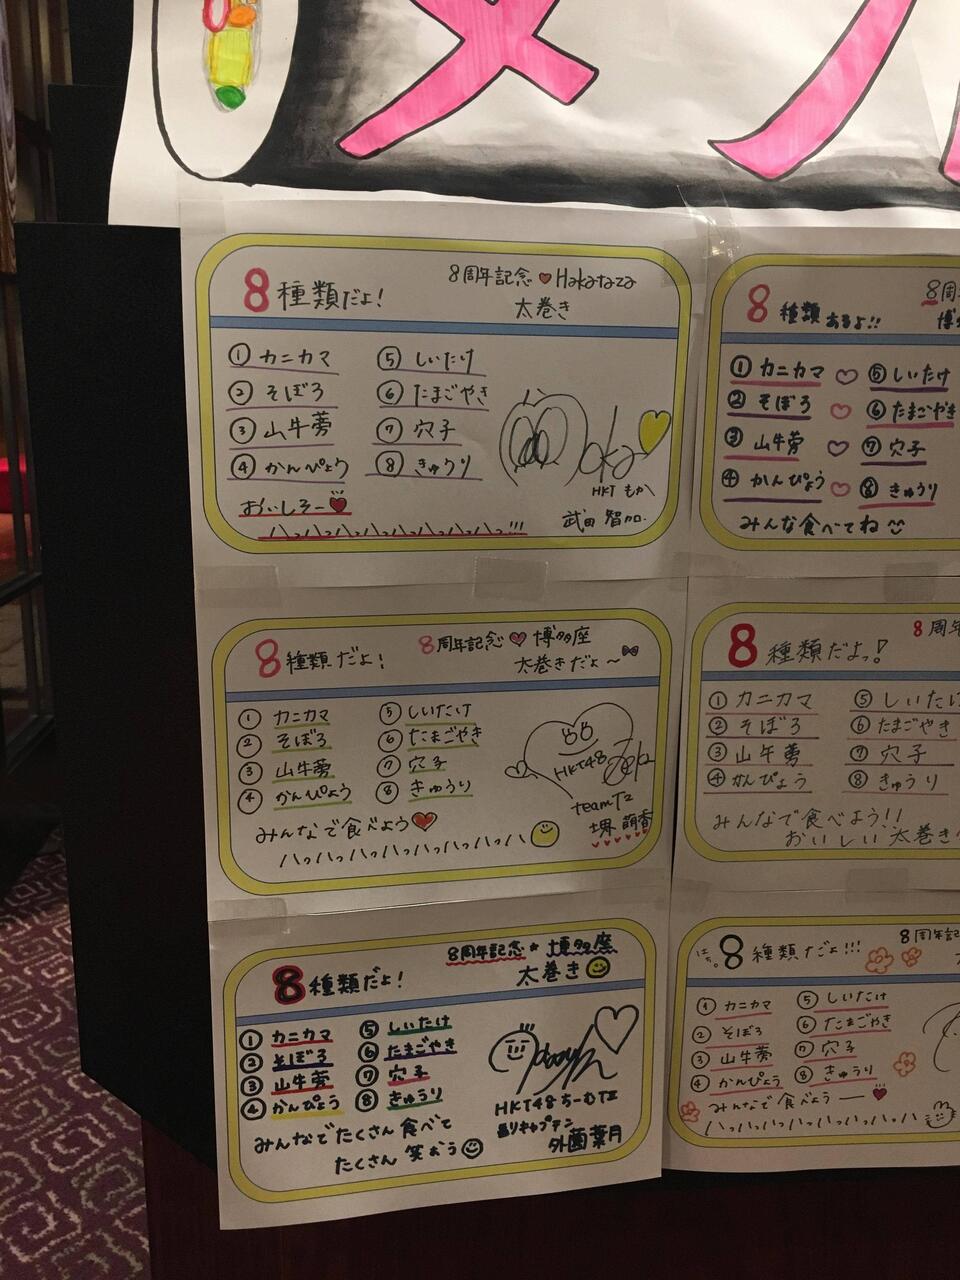 8種類だよ!
8周年記念♥Hakataza
太巻き
① カニカマ
② そぼろ
③ 山牛蒡
④ かんぴょう
⑤ しいたけ
⑥ たまごやき
⑦ 穴子
⑧ きゅうり
おいしそー♥
HKT
武田 智加
8 種類あるよ!!
8周
博
① カニカマ ♡ ⑤ しいたけ
② そぼろ ♡ ⑥ たまごやき
③ 山牛蒡 ♡ ⑦ 穴子
④ かんぴょう ♡ ⑧ きゅうり
みんな食べてね
8種類だよ!
8周年記念♥博多座
太巻きだよ~
① カニカマ
② そぼろ
③ 山牛蒡
④ かんぴょう
⑤ しいたけ
⑥ たまごやき
⑦ 穴子
⑧ きゅうり
みんなで食べよう♥
ハッハッハッハッハッハッハッハッ
HKT48
teamT2
堺 萌香
8 種類だよっ!
8周年
① カニカマ
② そぼろ
③ 山牛蒡
④ かんぴょう
⑤ しいたけ
⑥ たまごやき
⑦ 穴子
⑧ きゅうり
みんなで食べよう!!
おいしい太巻き
8種類だよ!
8周年記念★博多座
太巻き
① カニカマ
② そぼろ
③ 山牛蒡
④ かんぴょう
⑤ しいたけ
⑥ たまごやき
⑦ 穴子
⑧ きゅうり
みんなでたくさん食べて
たくさん笑おう
HKT48ちーむTⅡ
外薗葉月
8 種類だよ!!!
8周年記
① カニカマ
② そぼろ
③ 山牛蒡
④ かんぴょう
⑤ しいたけ
⑥ たまごやき
⑦ 穴子
⑧ きゅうり
みんなで食べよう—♥
ハッハッハッハッハッハッハッハッ